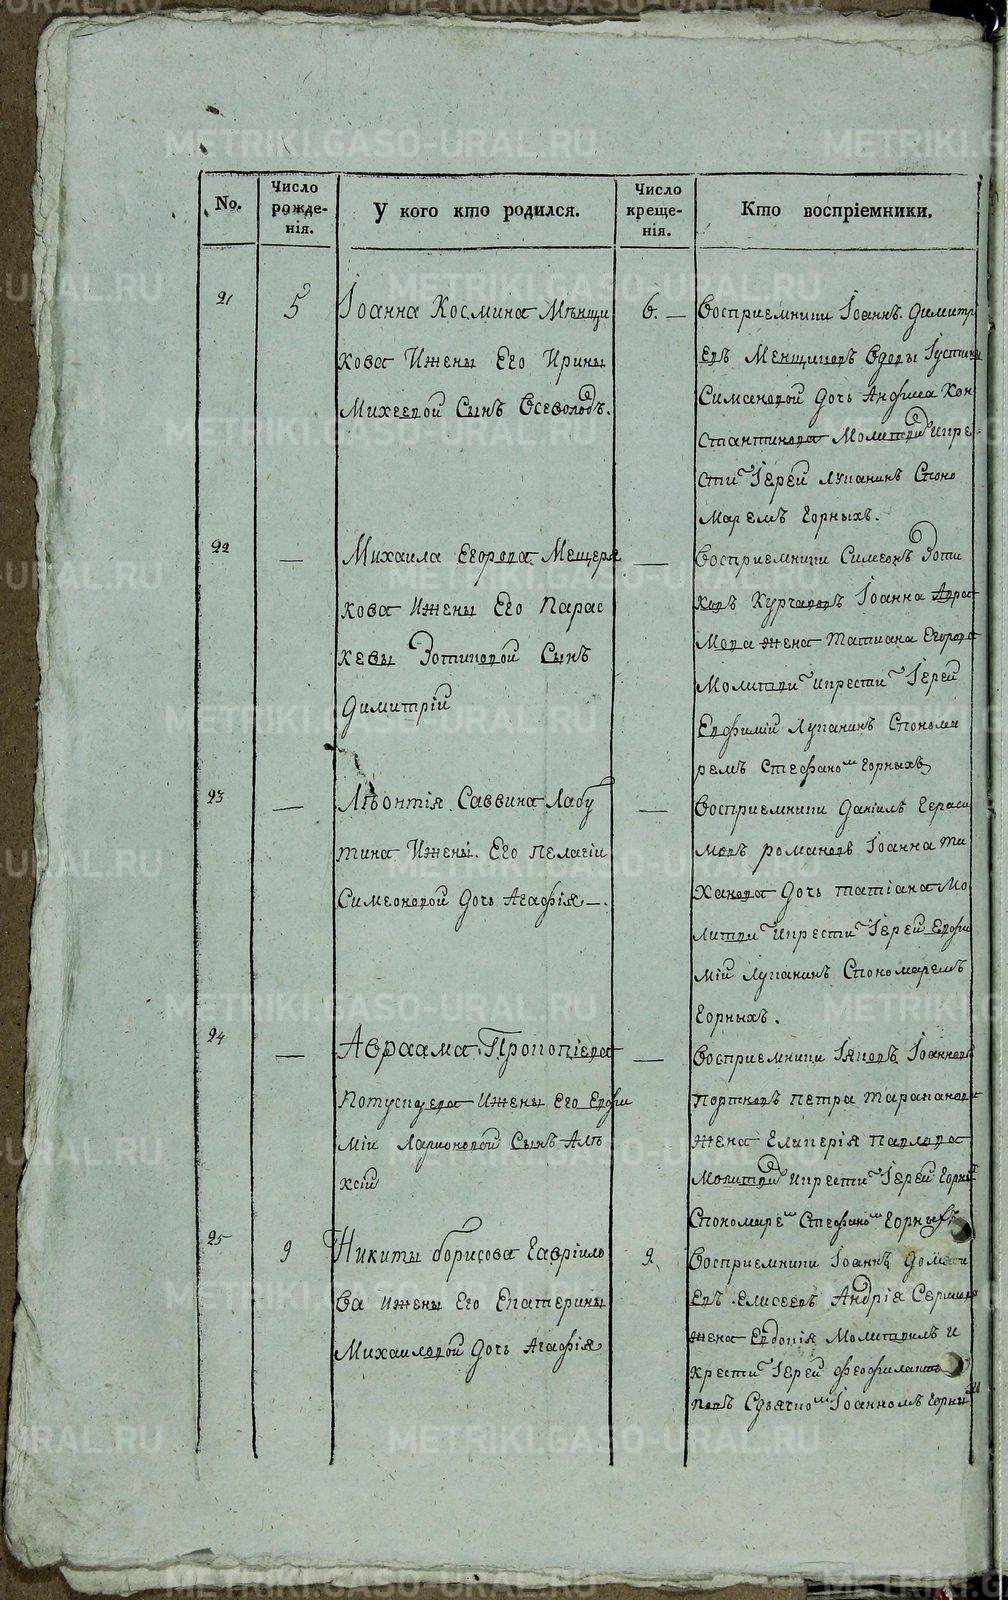 No.
Число рожде-нія.
У кого кто родился.
Число креще-нія.
Кто воспріемники.
21
5
Іоанна Космина Мѣнщи
кова Ижены Его Ирины
Михеевой Сынъ Всеволодъ.
6. —
Восприемники Іоаннъ Димитр
евъ Менщиковъ вдовы Іустины
Симановой Дочь Анфиса Кон
стантинова Молитвил Икре
сти Іерей Лупанинъ Споно
маремъ Горныхъ.
22
—
Михаила Егорова Мещеря
кова Ижены Его Парас
кевы Зотиковой Сынъ
Димитрій
—
Восприемники Симеонъ Зоти
ковъ Курчавовъ Іоанна Авра
мова жена Татиана Егорова
Молитвил Икрести Іерей
Евфимій Лупанинъ Спонома
ремъ Стефаном Горныхъ
23
—
Лѣонтія Саввина Лабу
тина Ижены Его Пелагіи
Симеоновой Дочь Агафія —.
—
Восприемники Даніилъ Гераси
мовъ Романовъ Іоанна
Дочь Татіана Мо
литвил Икрести Іерей Евфи
мій Лупанинъ Спономаремъ
Горныхъ.
24
—
Авраама Прокопіева
Ижены Его Евфи
міи Ларионовой Сынъ Алѣ
ксій
—
Восприемники Іяковъ Іоанновъ
Портновъ Петра Тараканова
жена Гликерія Павлова
Молитвил Икрести Іерей Горны
Спономарем Стефаном Горныхъ
25
9
Никиты Борисова Гавріило
ва Ижены Его Екатерины
Михаиловой Дочь Агафія
9
Восприемники Іоаннъ Домети
евъ Елисеевъ Андрія
жена Евдокія Молитвилъ и
крести Іерей Феофилактъ
Поповъ Сдьячком Іоанномъ Горных
METRIKI.GASO-URAL.RU